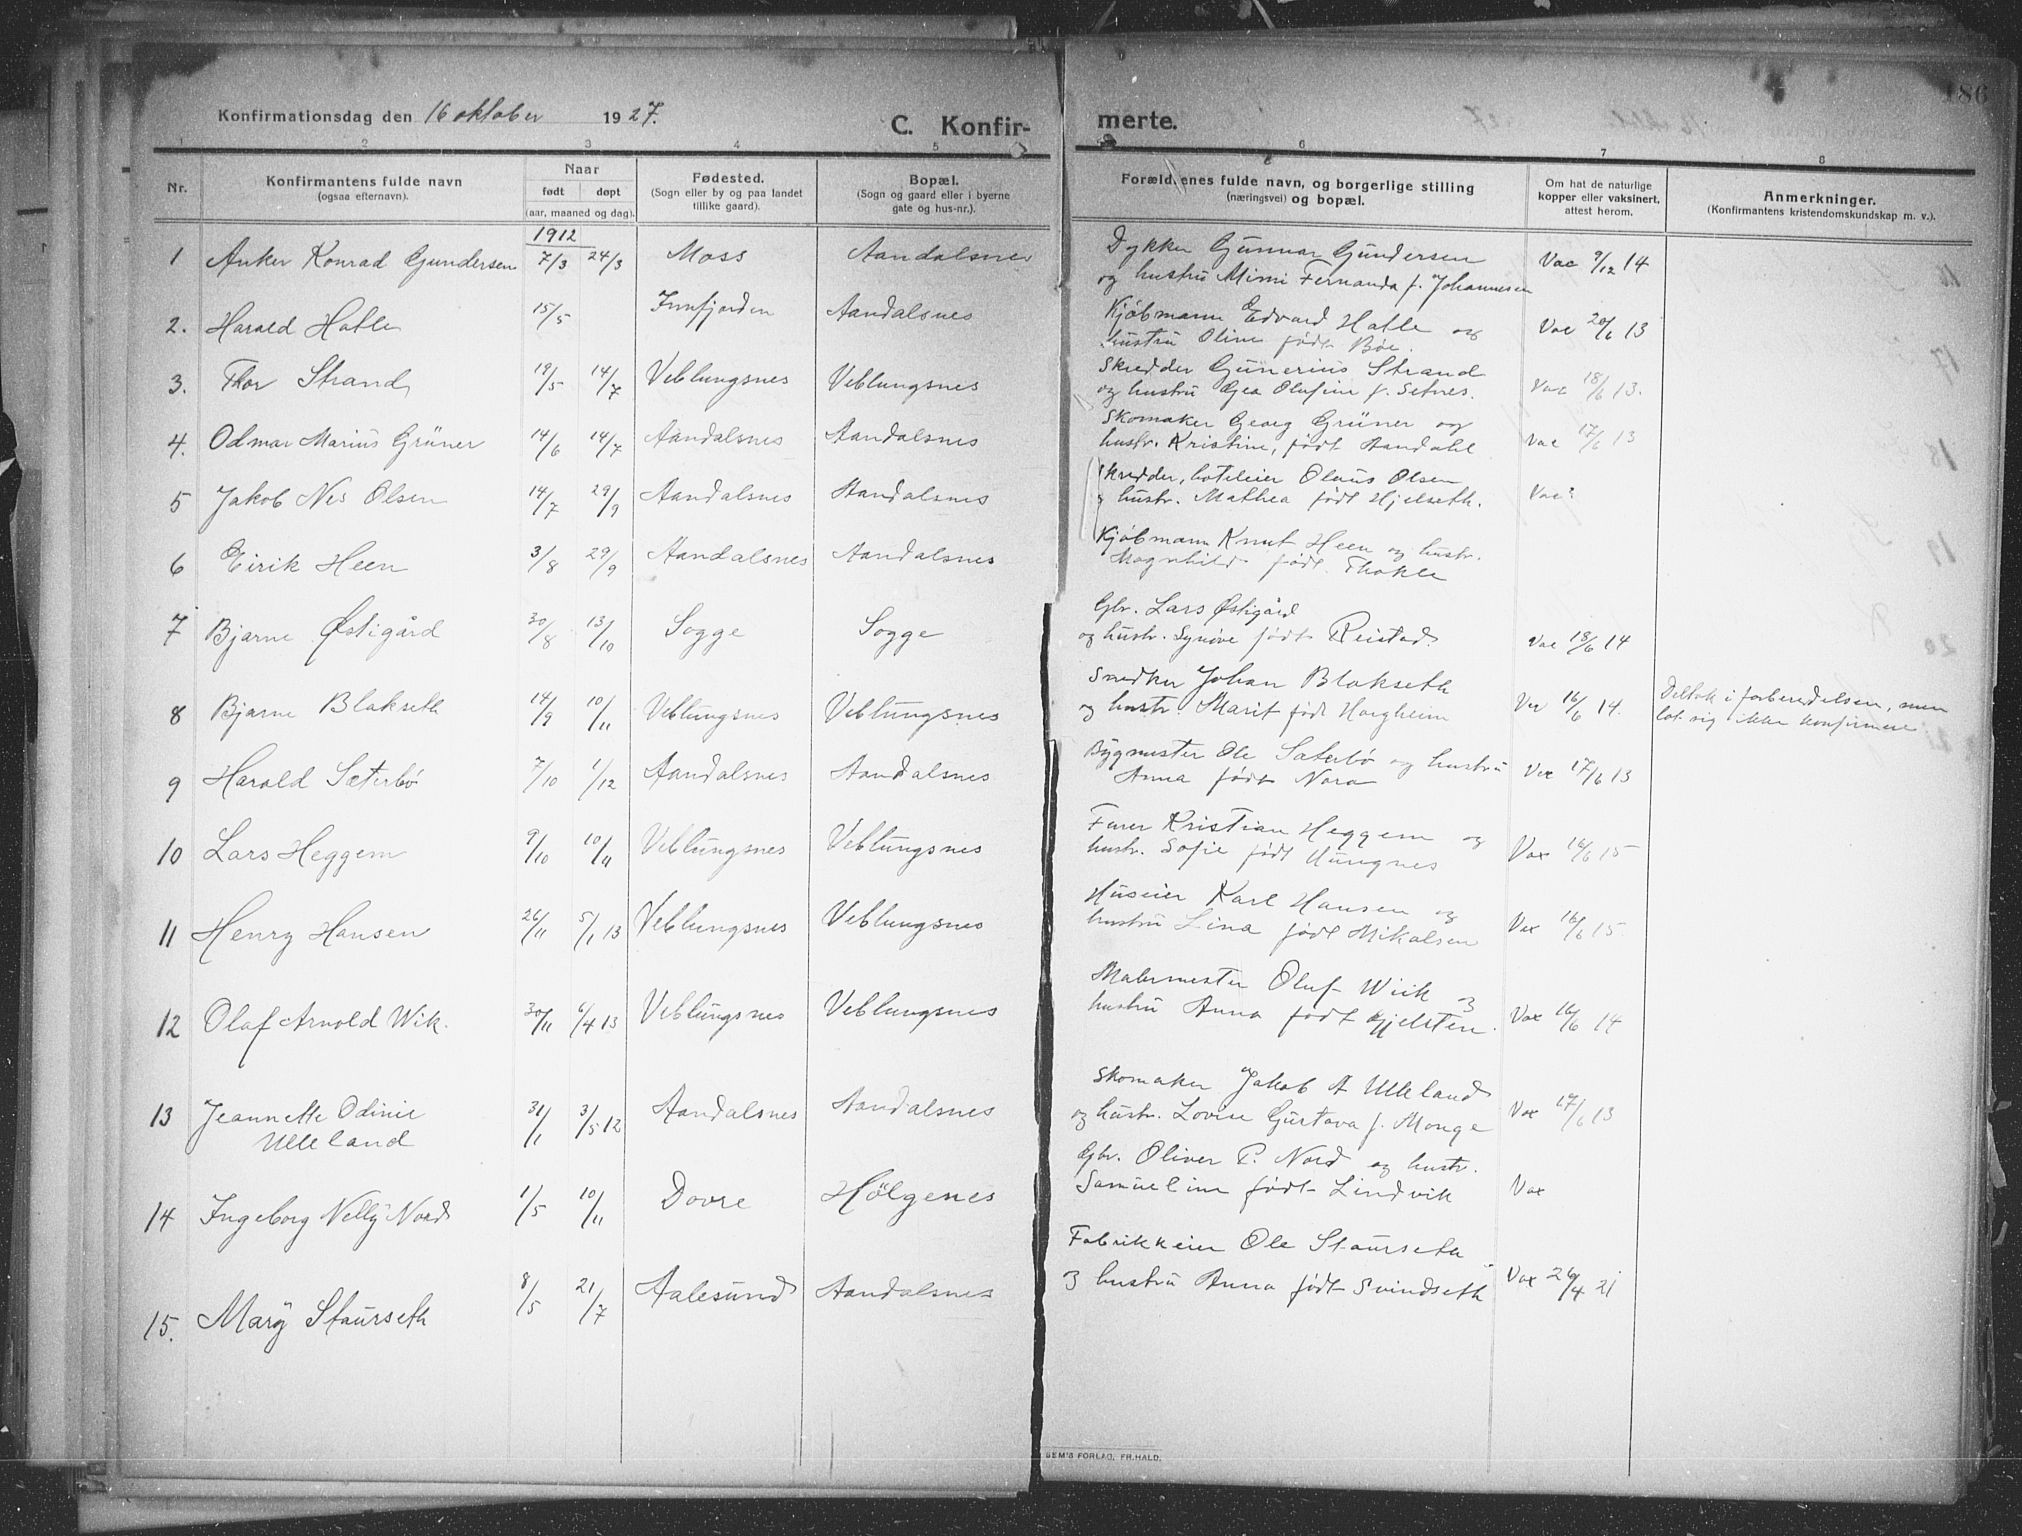 186
Konfirmationsdag den 16 oktober 1927.
C. Konfir- merte.
1 2 3 4 5 6 7 8
Nr.
Konfirmantens fulde navn
(ogsaa efternavn).
Naar
født døpt
(aar, maaned og dag).
Fødested.
(Sogn eller by og paa landet
tillike gaard).
Bopæl.
(Sogn og gaard eller i byerne
gate og hus-nr.).
Foræld enes fulde navn, og borgerlige stilling
(næringsvei) og bopæl.
Om hat de naturlige
kopper eller vaksinert,
attest herom.
Anmerkninger.
(Konfirmantens kristendomskundskap m. v.).
1912
1 Anker Konrad Gundersen 7/3 24/3 Moss Aandalsnes
Dykker Gunnar Gundersen
og hustrü Mimi Fernanda f. Johannesen
Vac 9/12 14
2. Harald Hatle 15/5 Innfjorden Aandalsnes
Kjøbmann Edvard Hatle og
hustrü Oline født Bøe.
Vac 20/6 13
3. Thor Strand 19/5 14/7 Veblüngsnes Veblüngsnes
Skredder Günerius Strand
og hustrü Gea Olufine f. Setnes.
Vac 18/6 13.
4. Odmar Marius Grüner 14/6 14/7 Aandalsnes Aandalsnes
Skomaker Georg Grüner og
hustr. Kristine, født Aandahl
Vac 17/6 13
5 Jakob Nes Olsen 14/7 29/9 Aandalsnes Aandalsnes
Skredder, hoteleier Olaus Olsen
og hustr. Mathea født Hjelseth.
Vac?
6 Eirik Heen 3/8 29/9 Aandalsnes Aandalsnes
Kjøbmann Knut Heen og hustr.
Magnhild født Thokle
7 Bjarne Østigård 30/8 13/10 Sogge Sogge
Gbr. Lars Østigård
og hustr. Synøve født Reistad.
Vac 18/6 14
8 Bjarne Blakseth 14/9 10/11 Veblüngsnes Veblüngsnes
Snedker Johan Blakseth
og hustr. Marit født Horgheim
Vac 16/6 14.
Deltok i forberedelsen, men
lot sig ikke konfirmere
9 Harald Sæterbø 7/10 1/12 Aandalsnes Aandalsnes
Bygmester Ole Sæterbø og hustrü
Anna født Nora
Vac 17/6 13
10 Lars Heggem 9/10 10/11 Veblüngsnes Veblüngsnes
Furer Kristian Heggem og
hustr. Sofie født
Vax 16/6 15
11 Henry Hansen 26/11 5/1 13 Veblungsnes Veblüngsnes
Hüseier Karl Hansen og
hustrü Lina født Mikalsen
Vax 16/6 15.
12 Olaf Arnold Wik. 30/11 6/4 13 Veblüngsnes Veblüngsnes
Malermester Oluf Wiik og
hustrü Anna født Gjelsten.
Vax 16/6 14
13 Jeannette Odinie 31/1 3/5 12 Aandalsnes Aandalsnes
Ulleland
Skomaker Jakob A Ulleland
og hustr. Lovise Gustava f. Monge
Vax 17/6 13
14 Ingeborg Nelly Nord 1/5 10/11 Dovre Hölgenes
Gbr. Oliver P. Nord og hustr.
Samueline født Lindvik
Vax
15. Mary Staurseth 8/5 21/7 Aalesund Aandalsnes
Fabrikkeier Ole Staurseth
og hustrü Anna født Svindseth
Vax 26/4 21
SEM'S FORLAG, FR.HALD.